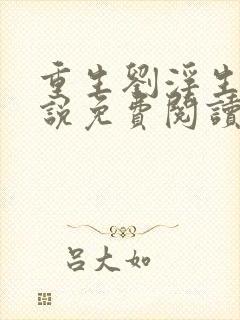 重生劉淫生
說免費閱讀
呂大如